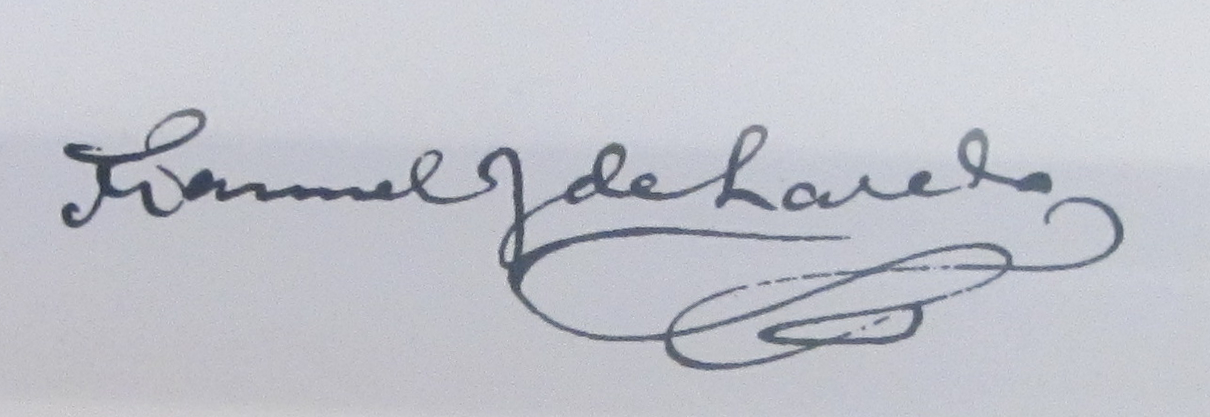 Manuel J de Laredo